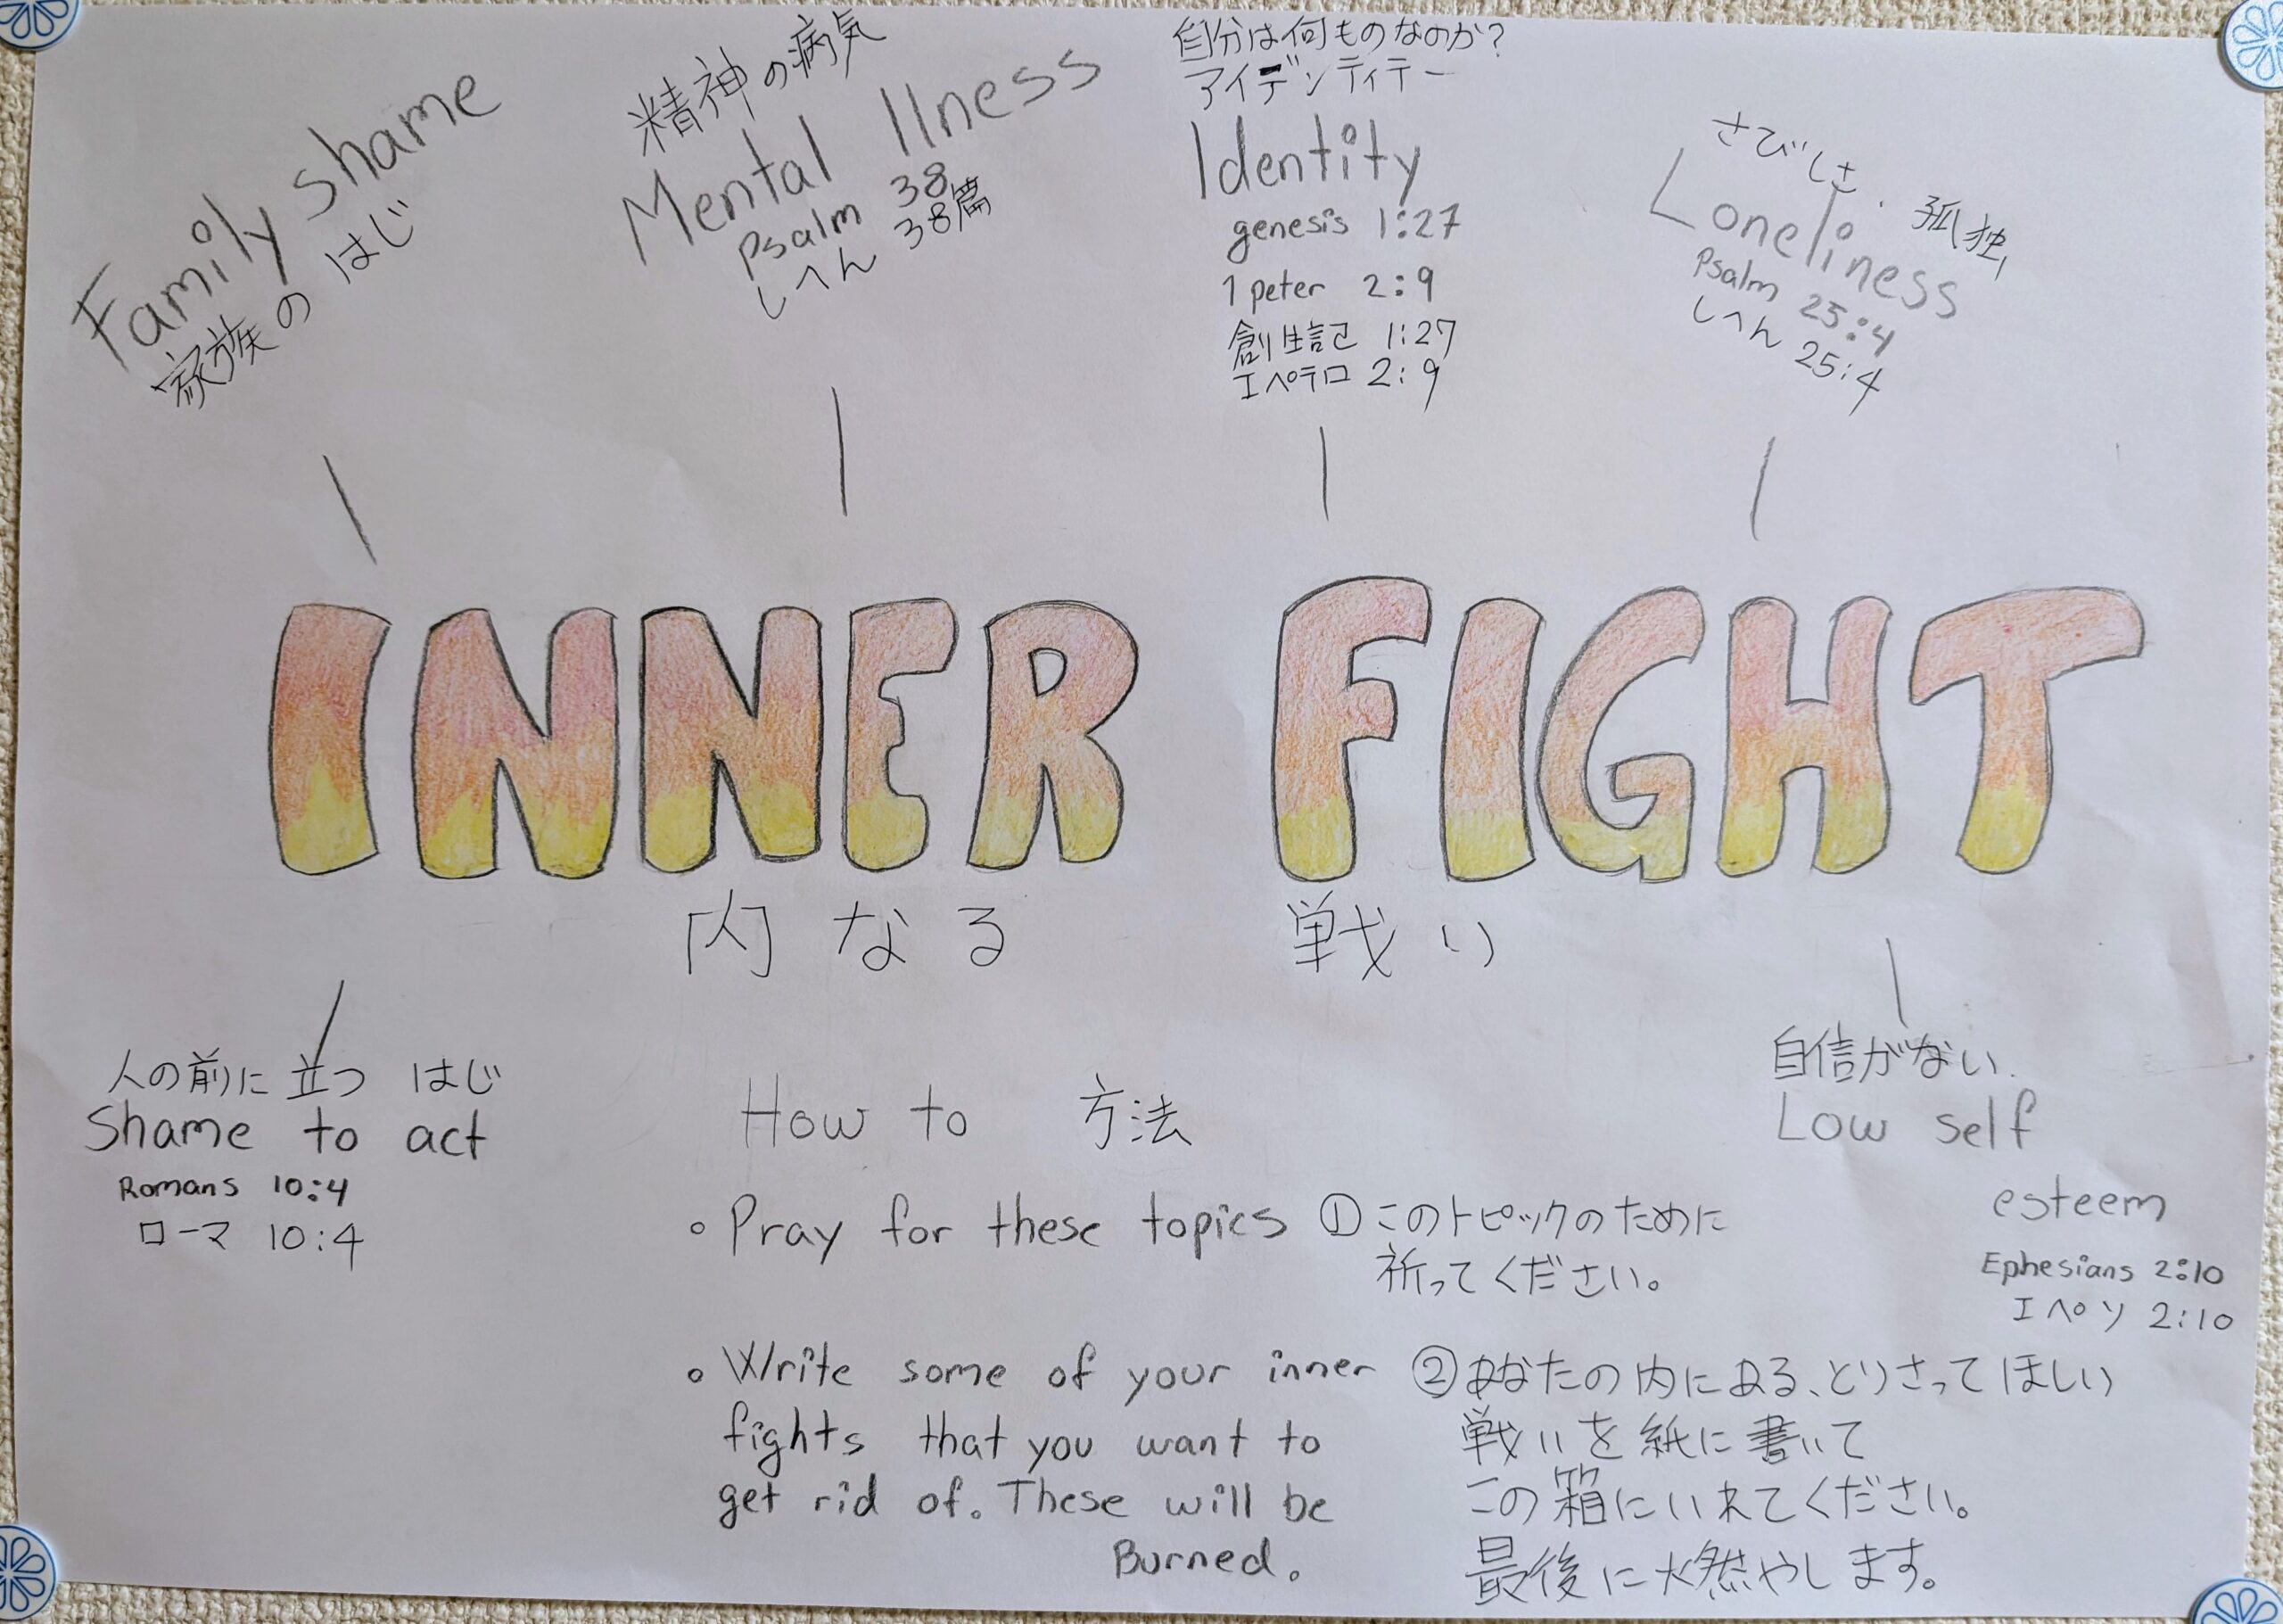 Family shame
家族の はじ
精神の病気
Mental Ilness
Psalm 38
しへん 38篇
自分は何ものなのか?
アイデンティティー
Identity
genesis 1:27
1 peter 2:9
創生記 1:27
Iペテロ 2:9
さびしさ. 孤独
Loneliness
Psalm 25:4
しへん 25:4
INNER FIGHT
内なる 戦い
人の前に立つ はじ
Shame to act
Romans 10:4
ローマ 10:4
自信がない.
Low self
esteem
Ephesians 2:10
エペソ 2:10
How to 方法
• Pray for these topics
①このトピックのために
祈ってください。
• Write some of your inner
fights that you want to
get rid of. These will be
Burned.
②あなたの内にある、とりさってほしい
戦いを紙に書いて
この箱にいれてください。
最後に燃やします。